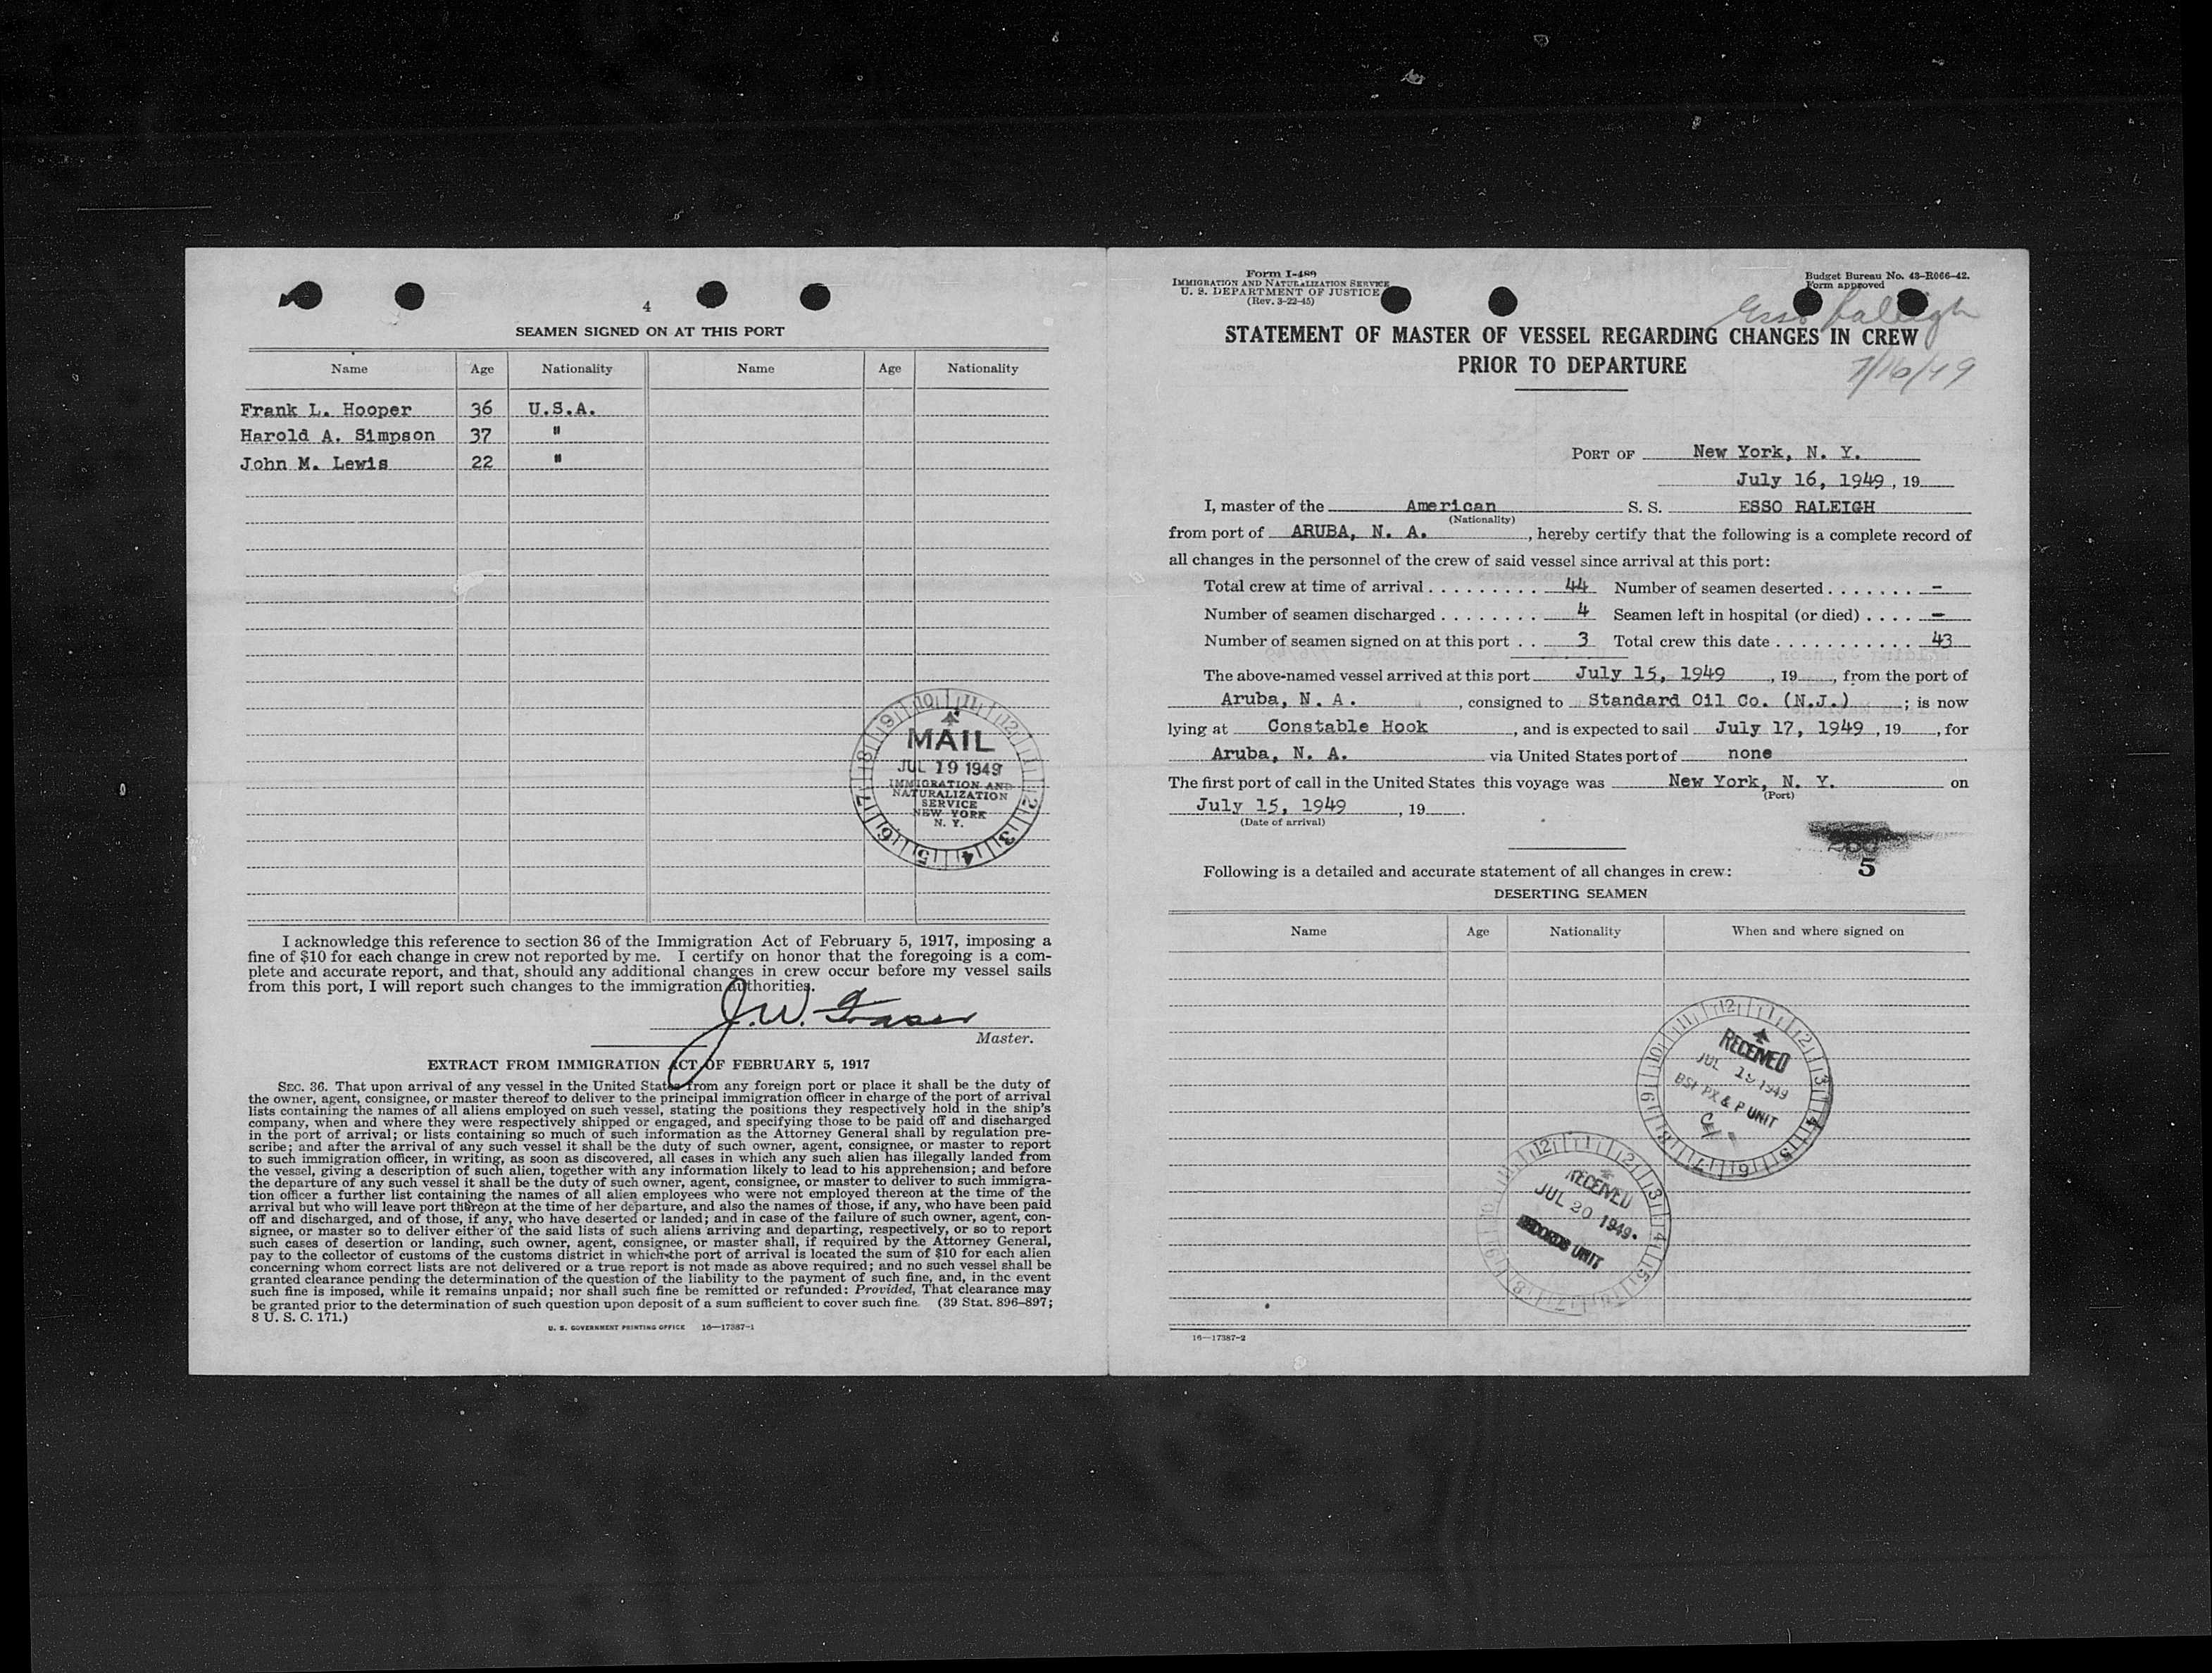 4
SEAMEN SIGNED ON AT THIS PORT
Name Age Nationality Name Age Nationality
Frank L. Hooper 36 U.S.A.
Harold A. Simpson 37 "
John M. Lewis 22 "
10 11 12 1 2 3 4 5 6 7 8 9
MAIL
JUL 19 1949
IMMIGRATION AND
NATURALIZATION
SERVICE
NEW YORK
N. Y.
I acknowledge this reference to section 36 of the Immigration Act of February 5, 1917, imposing a
fine of $10 for each change in crew not reported by me. I certify on honor that the foregoing is a com-
plete and accurate report, and that, should any additional changes in crew occur before my vessel sails
from this port, I will report such changes to the immigration authorities.
J. W. Fraser
Master.
EXTRACT FROM IMMIGRATION ACT OF FEBRUARY 5, 1917
SEC. 36. That upon arrival of any vessel in the United States from any foreign port or place it shall be the duty of
the owner, agent, consignee, or master thereof to deliver to the principal immigration officer in charge of the port of arrival
lists containing the names of all aliens employed on such vessel, stating the positions they respectively hold in the ship's
company, when and where they were respectively shipped or engaged, and specifying those to be paid off and discharged
in the port of arrival; or lists containing so much of such information as the Attorney General shall by regulation pre-
scribe; and after the arrival of any such vessel it shall be the duty of such owner, agent, consignee, or master to report
to such immigration officer, in writing, as soon as discovered, all cases in which any such alien has illegally landed from
the vessel, giving a description of such alien, together with any information likely to lead to his apprehension; and before
the departure of any such vessel it shall be the duty of such owner, agent, consignee, or master to deliver to such immigra-
tion officer a further list containing the names of all alien employees who were not employed thereon at the time of the
arrival but who will leave port thereon at the time of her departure, and also the names of those, if any, who have been paid
off and discharged, and of those, if any, who have deserted or landed; and in case of the failure of such owner, agent, con-
signee, or master so to deliver either of the said lists of such aliens arriving and departing, respectively, or so to report
such cases of desertion or landing, such owner, agent, consignee, or master shall, if required by the Attorney General,
pay to the collector of customs of the customs district in which the port of arrival is located the sum of $10 for each alien
concerning whom correct lists are not delivered or a true report is not made as above required; and no such vessel shall be
granted clearance pending the determination of the question of the liability to the payment of such fine, and, in the event
such fine is imposed, while it remains unpaid; nor shall such fine be remitted or refunded: Provided, That clearance may
be granted prior to the determination of such question upon deposit of a sum sufficient to cover such fine. (39 Stat. 896–897;
8 U. S. C. 171.)
U. S. GOVERNMENT PRINTING OFFICE 16—17387-1
Form I-489
IMMIGRATION AND NATURALIZATION SERVICE
U. S. DEPARTMENT OF JUSTICE
(Rev. 3-22-45)
Budget Bureau No. 43-R066-42.
Form approved
Esso Raleigh
STATEMENT OF MASTER OF VESSEL REGARDING CHANGES IN CREW
PRIOR TO DEPARTURE
7/16/49
PORT OF New York, N. Y.
July 16, 1949, 19
I, master of the American S. S. ESSO RALEIGH
(Nationality)
from port of ARUBA, N. A., hereby certify that the following is a complete record of
all changes in the personnel of the crew of said vessel since arrival at this port:
Total crew at time of arrival . . . . . . . . . 44 Number of seamen deserted . . . . . . . –
Number of seamen discharged . . . . . . . . 4 Seamen left in hospital (or died) . . . . –
Number of seamen signed on at this port . . 3 Total crew this date . . . . . . . . . . . 43
The above-named vessel arrived at this port July 15, 1949, 19, from the port of
Aruba, N. A., consigned to Standard Oil Co. (N.J.); is now
lying at Constable Hook, and is expected to sail July 17, 1949, 19, for
Aruba, N. A. via United States port of none
The first port of call in the United States this voyage was New York, N. Y. on
(Port)
July 15, 1949, 19.
(Date of arrival)
5
Following is a detailed and accurate statement of all changes in crew:
DESERTING SEAMEN
Name Age Nationality When and where signed on
RECEIVED
JUL 19 1949
BSI PX & P UNIT
RECEIVED
JUL 20 1949
RECORDS UNIT
16—17387-2